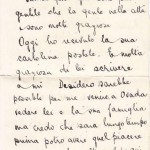 gentile che la gente nella città
e sono molto graziose
Oggi ho ricevuto la sua
cartolina postale. È molto
graziosa di lei scrivere
a mi. Desidero sarebbe
possibile per me venire a
vedere lei e la sua famiglia
ma credo che sarà lungo tempo
prima potrò avere quel piacere